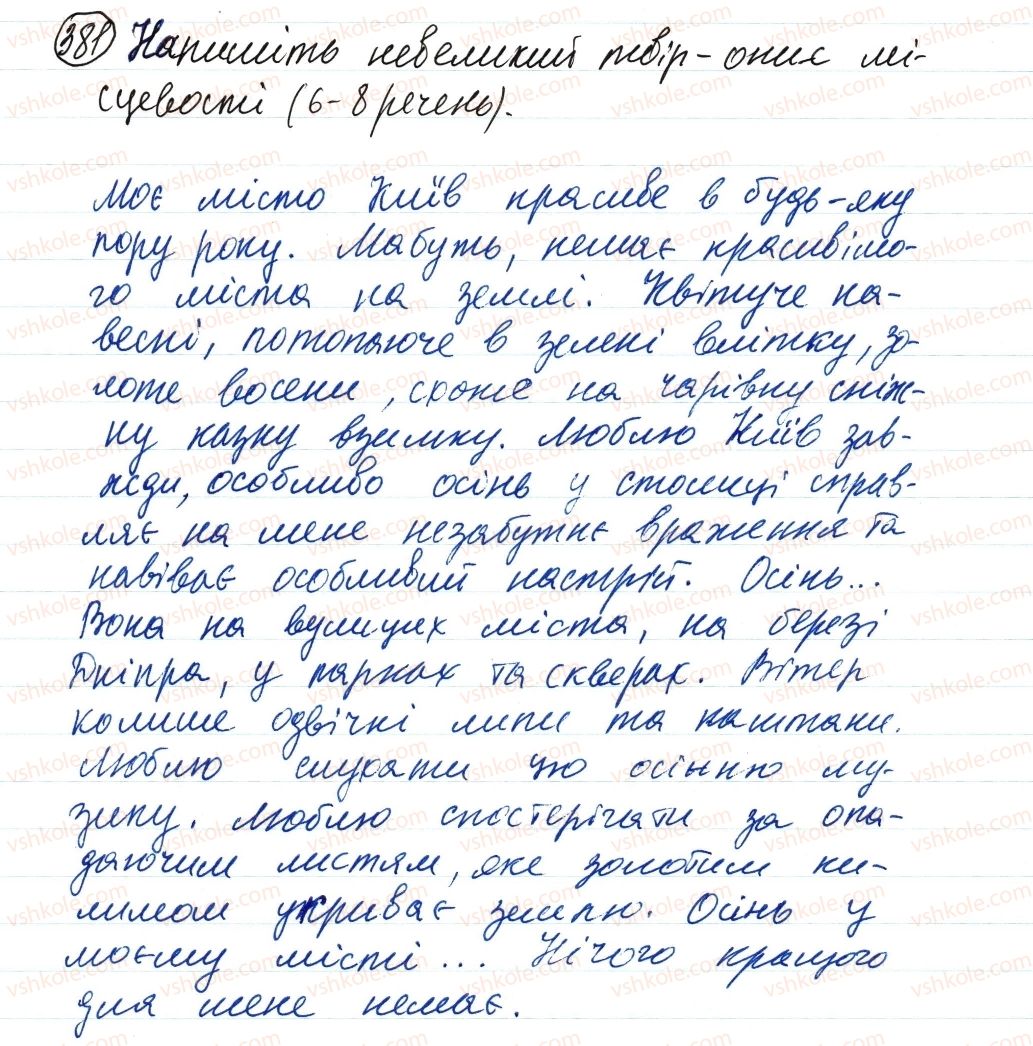 381 Напишіть невеликий твір-опис мі-
сцевості (6-8 речень).
Моє місто Київ красиве в будь-яку
пору року. Мабуть, немає красивішо-
го міста на землі. Квітуче на-
весні, потопаюче в зелені влітку, зо-
лоте восени, схоже на чарівну сніж-
ну казку взимку. Люблю Київ зав-
жди, особливо осінь у столиці справ-
ляє на мене незабутнє враження та
навіває особливий настрій. Осінь...
Вона на вулицях міста, на березі
Дніпра, у парках та скверах. Вітер
колише одвічні липи та каштани.
Люблю слухати цю осінню му-
зику. Люблю спостерігати за опа-
даючим листям, яке золотим ки-
лимом укриває землю. Осінь у
моєму місті... Нічого кращого
для мене немає.